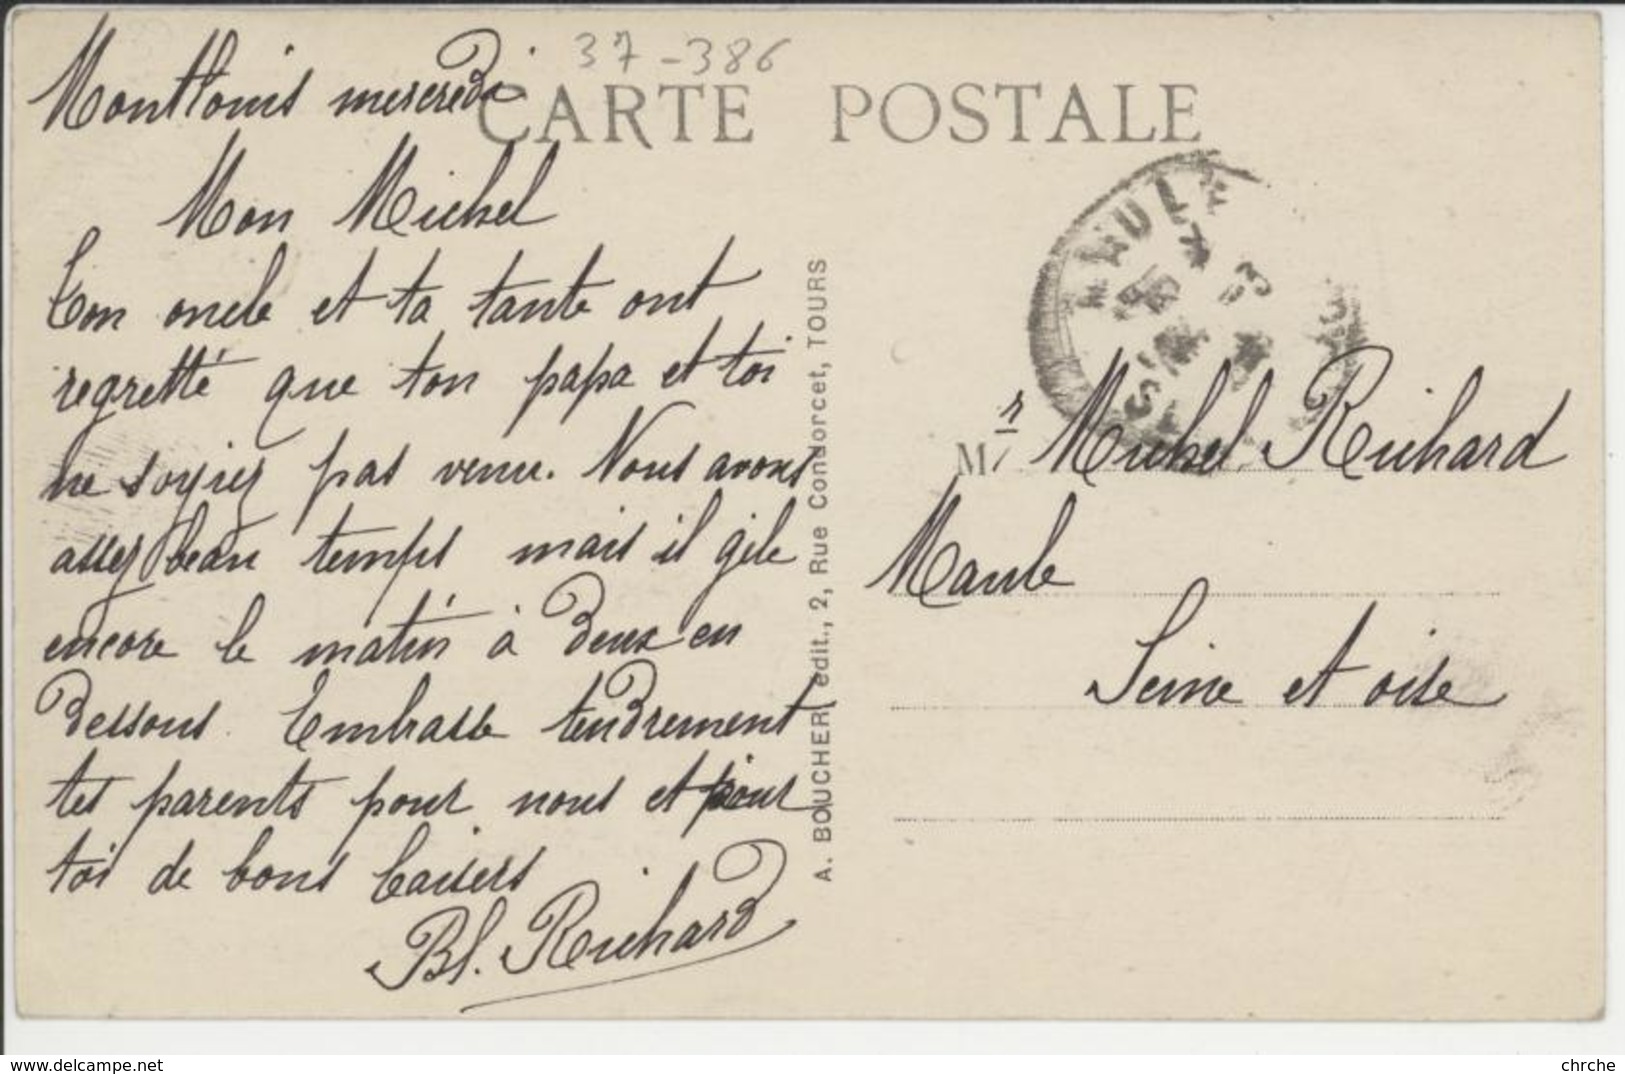 37-386
CARTE POSTALE
Montlouis mercredi
Mon Michel
Ton oncle et ta tante ont
regretté que ton papa et toi
ne soyiez pas venu. Nous avons
assez beau temps mais il gèle
encore le matin à deux en
dessous. Embrasse tendrement
tes parents pour nous et pour
toi de bons baisers
Bl. Richard
A. BOUCHER édit., 2, Rue Condorcet, TOURS
MAULE
Mr Michel Richard
Maule
Seine et oise
www.delcampe.net
chrche